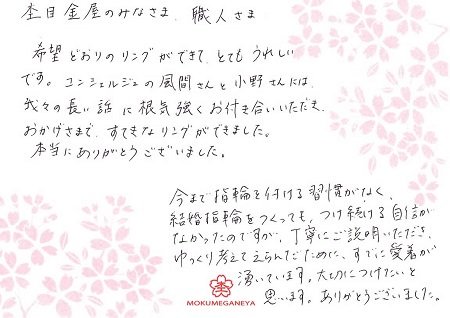 杢目金屋のみなさま、職人さま
希望どおりのリングができて、とてもうれしい
です。コンシェルジュの風間さんと小野さんには、
我々の長い話に根気強くお付き合いいただき、
おかげさまで、すてきなリングができました。
本当にありがとうございました。
今まで指輪を付ける習慣がなく、
結婚指輪をつくっても、つけ続ける自信が
なかったのですが、丁寧にご説明いただき、
ゆっくり考えてえらんだために、すでに愛着が
湧いています。大切につけたいと
思います。ありがとうございました。
MOKUMEGANEYA